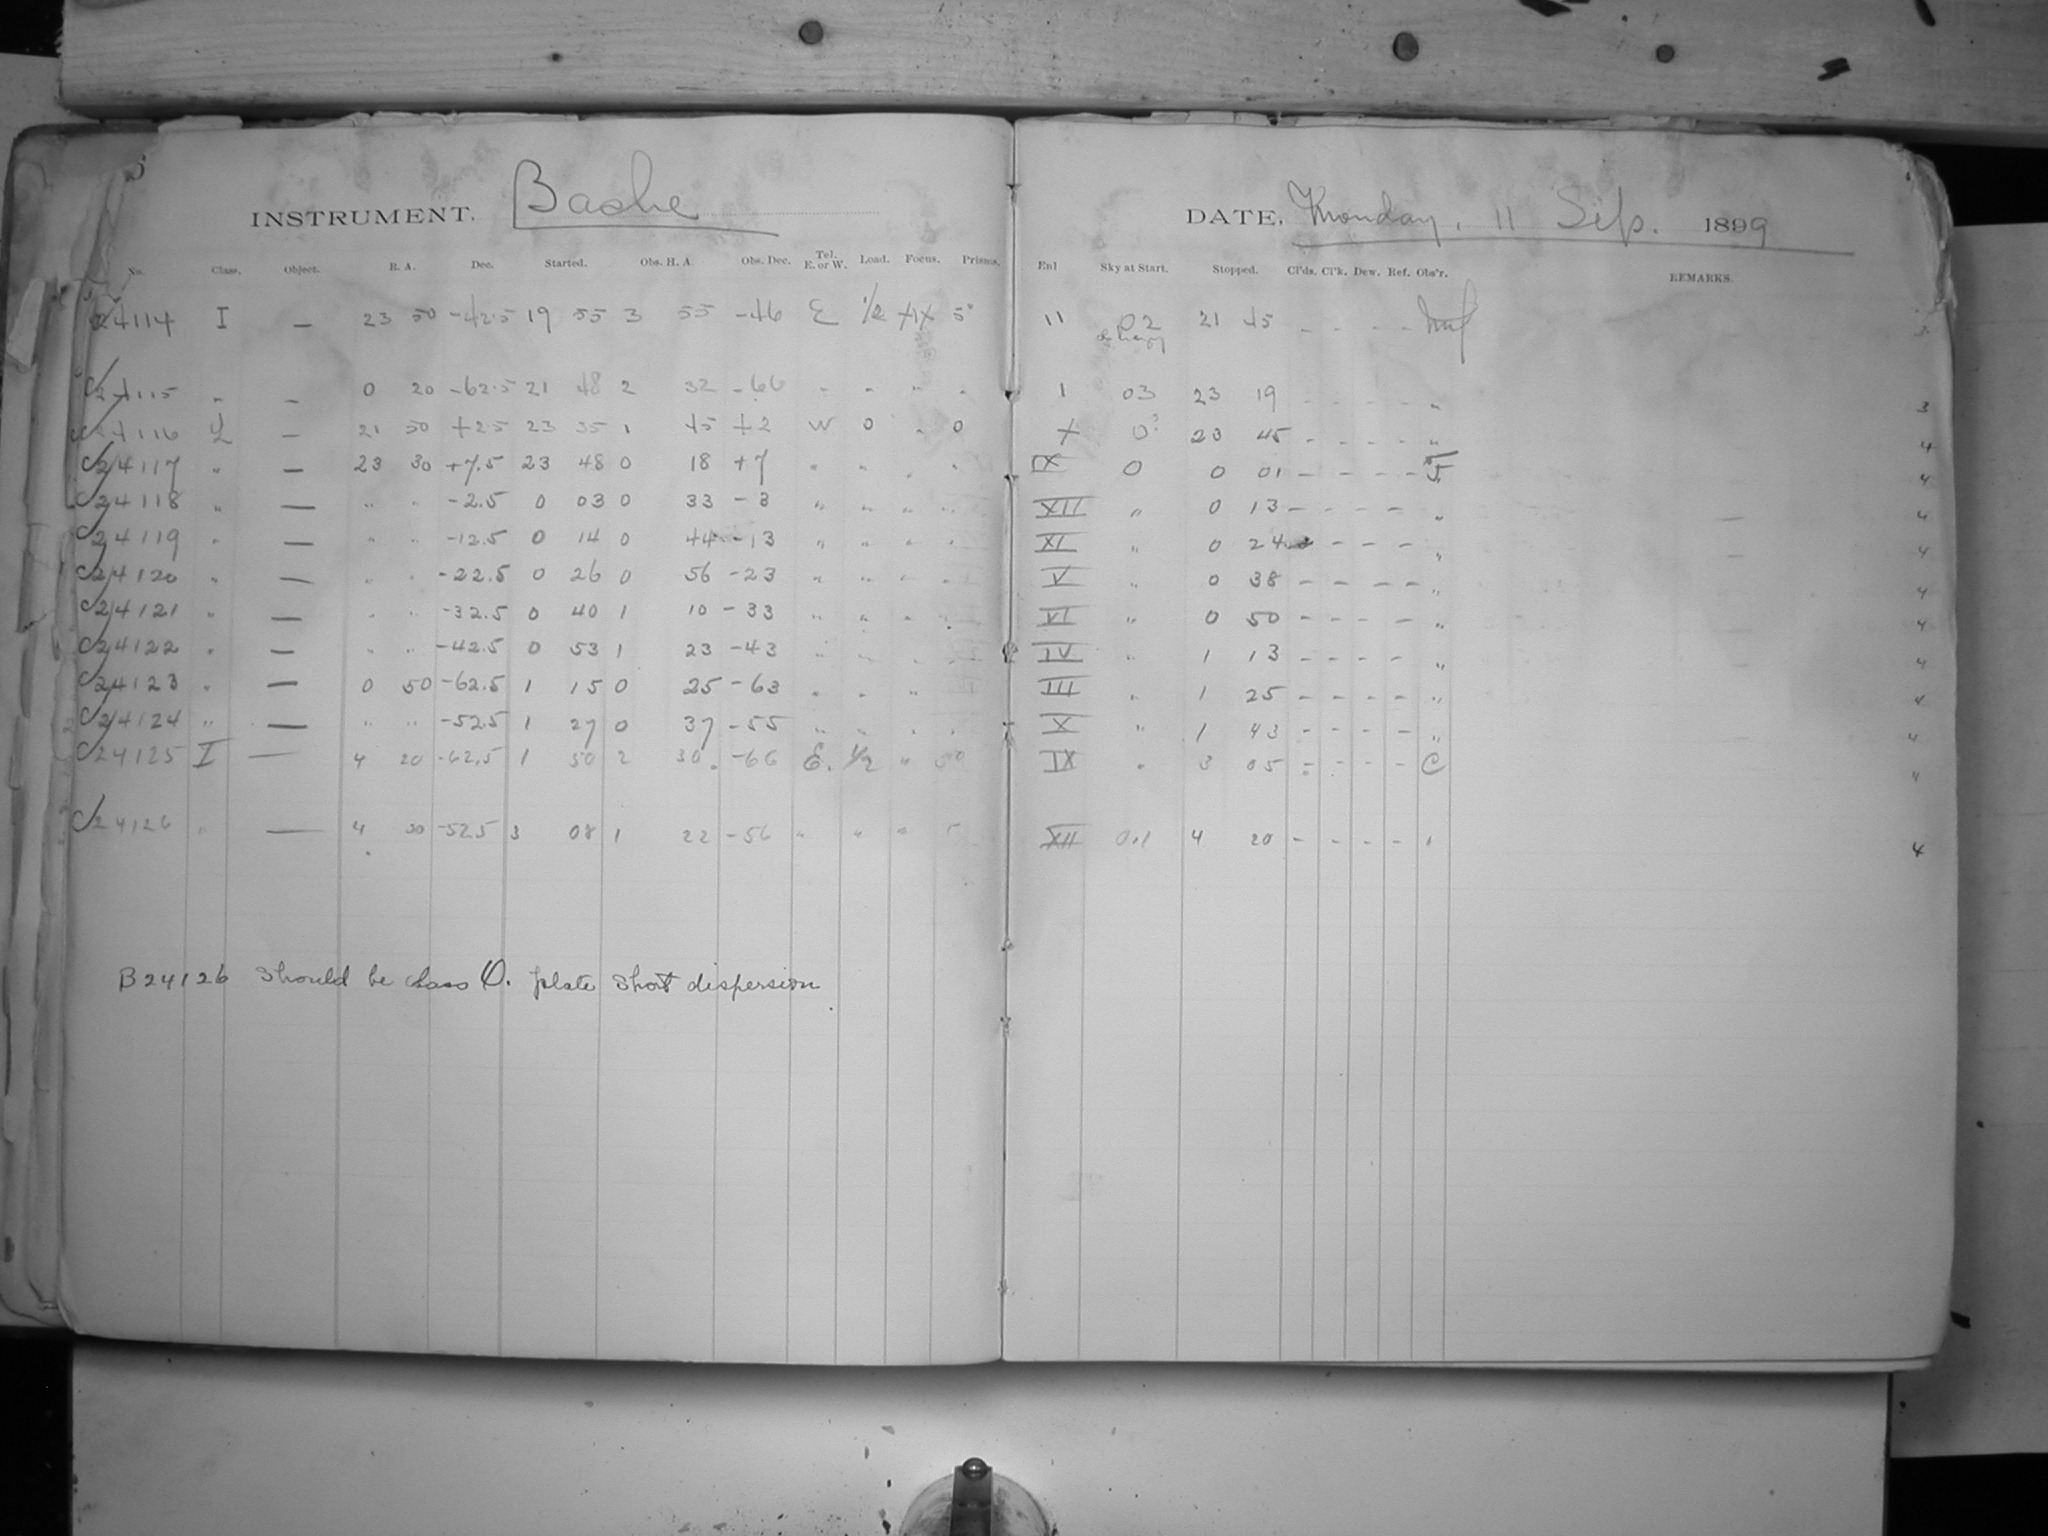 INSTRUMENT. Bache
DATE, Monday, 11 Sep. 1899
No. Class. Object. R. A. Dec. Started. Obs. H. A. Obs. Dec. Tel. E. or W. Load. Focus. Prisms. Enl Sky at Start. Stopped. Cl'ds. Cl'k. Dew. Ref. Obs'r. REMARKS.
24114 I — 23 50 -42.5 19 55 3 55 -46 E 1/2 5 11 02 21 45 - - - - 3
C24115 " — 0 20 -62.5 21 48 2 32 -66 " " " " 1 03 23 19 - - - - " 3
C24116 L — 21 50 +2.5 23 35 1 45 +2 W 0 " 0 X 0? 23 45 - - - - " 4
C24117 " — 23 30 +7.5 23 48 0 18 +7 " " " " IX 0 0 01 - - - - J 4
C24118 " — " " -2.5 0 03 0 33 -3 " " " " XII " 0 13 - - - - " 4
C24119 " — " " -12.5 0 14 0 44 -13 " " " " XI " 0 24 - - - - " 4
C24120 " — " " -22.5 0 26 0 56 -23 " " " " V " 0 38 - - - - " 4
C24121 " — " " -32.5 0 40 1 10 -33 " " " " VI " 0 50 - - - - " 4
C24122 " — " " -42.5 0 53 1 23 -43 " " " " IV " 1 13 - - - - " 4
C24123 " — 0 50 -62.5 1 15 0 25 -63 " " " " III " 1 25 - - - - " 4
C24124 " — " " -52.5 1 27 0 37 -55 " " " " X " 1 43 - - - - " 4
C24125 I — 4 20 -62.5 1 50 2 30 -66 E. 1/2 " 50 IX " 3 05 - - - - C "
C24126 " — 4 30 -52.5 3 08 1 22 -56 " " " XII 0.1 4 20 - - - - " 4
B24126 should be class O. plate short dispersion